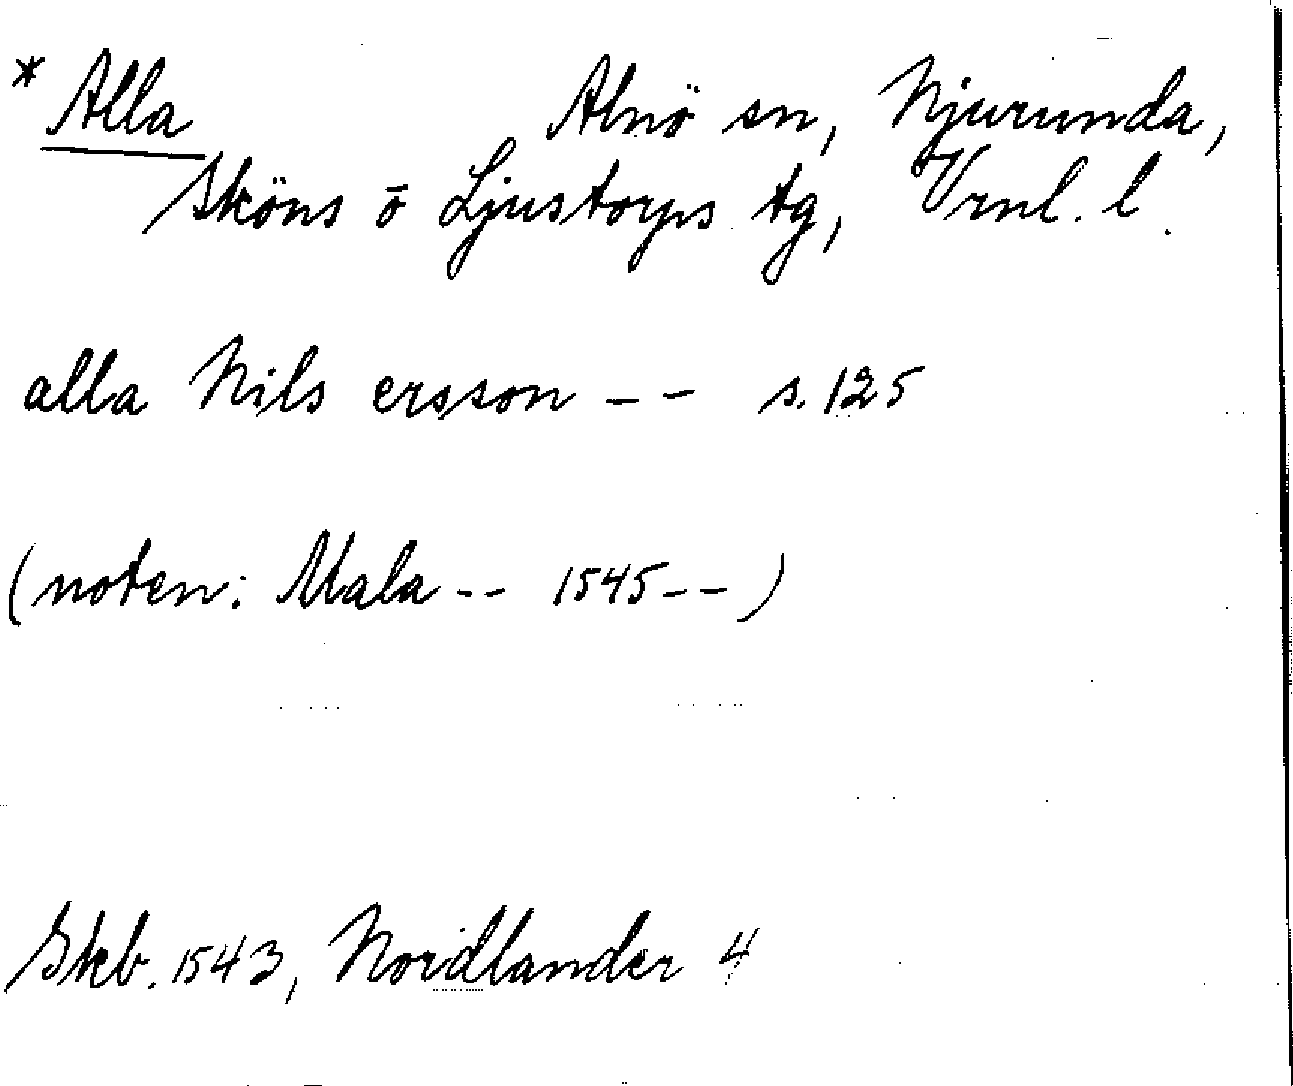 * Alla Alnö sn, Njurunda,
Sköns o Ljustorps tg, Vrnl. l.
alla Nils ersson -- s. 125
(noten: Mala -- 1545 -- )
Skb. 1543, Nordlander 4